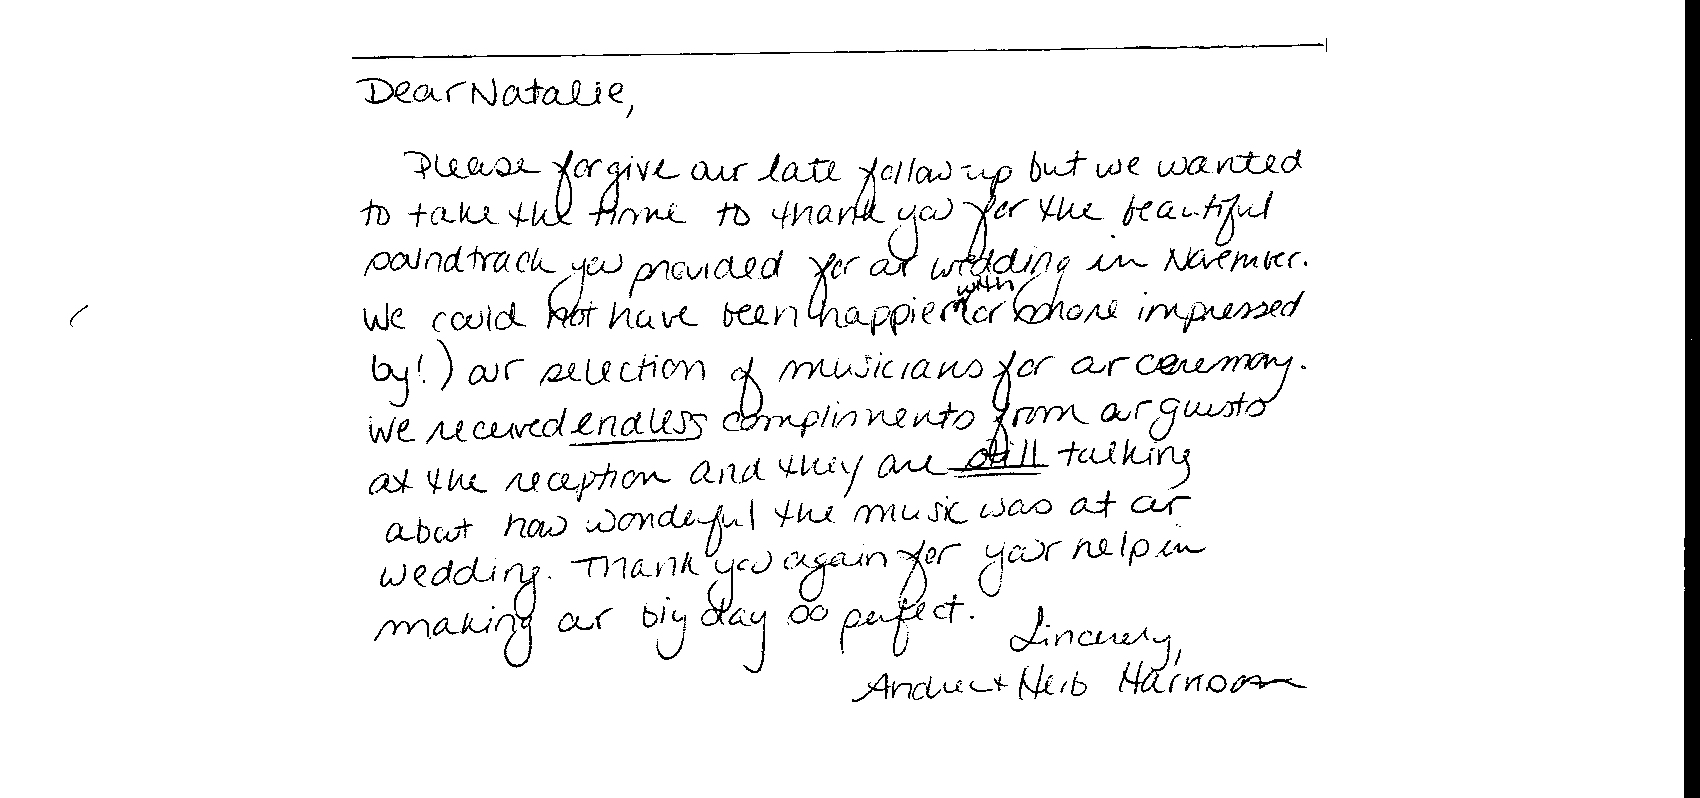 Dear Natalie,
Please forgive our late follow-up but we wanted
to take the time to thank you for the beautiful
soundtrack you provided for our wedding in November.
with
We could not have been happier (or more impressed
by!) our selection of musicians for our ceremony.
We received endless compliments from our guests
at the reception and they are still talking
about how wonderful the music was at our
wedding. Thank you again for your help in
making our big day so perfect.
Sincerely,
Herb